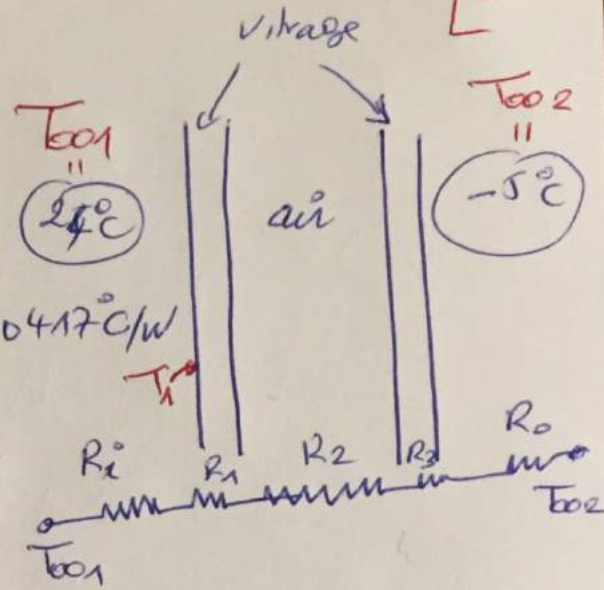 vitrage
T∞1
T∞2
"
"
24°C
air
-5°C
0417°C/W
T1
Ri
R1
R2
R3
Ro
T∞1
T∞2